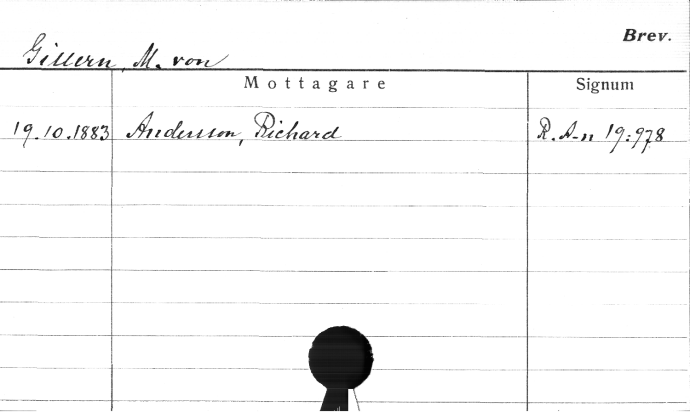 Brev.
Gillern, M. von
Mottagare Signum
19.10.1883 Andersson, Richard R. A-n 19:978